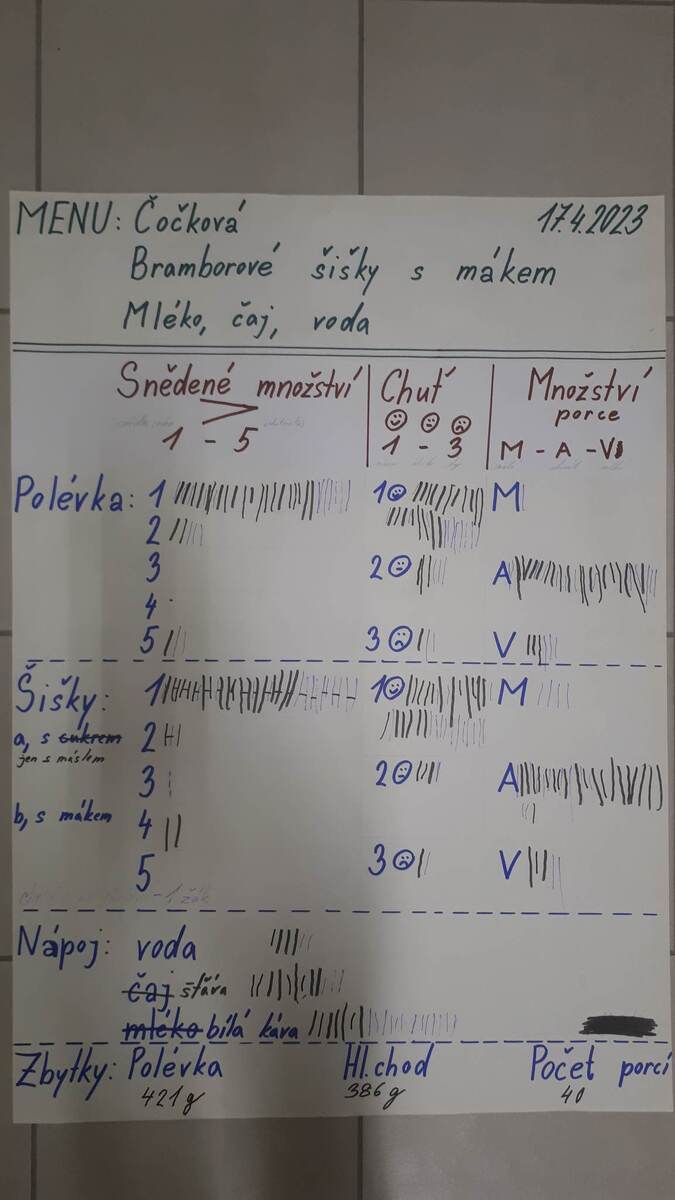 MENU: Čočková 17.4.2023
Bramborové šišky s mákem
Mléko, čaj, voda
Snědené množství Chuť Množství
porce
1 - 5 1 - 3 M - A - V
Polévka: 1 1 M
2
3 2 A
4
5 3 V
Šišky: 1 1 M
a, s cukrem 2
jen s máslem
3 2 A
b, s mákem 4
5 3 V
- 1 žák
Nápoj: voda
čaj šťáva
mléko bílá káva
Zbytky: Polévka Hl. chod Počet porcí
421 g 386 g 40